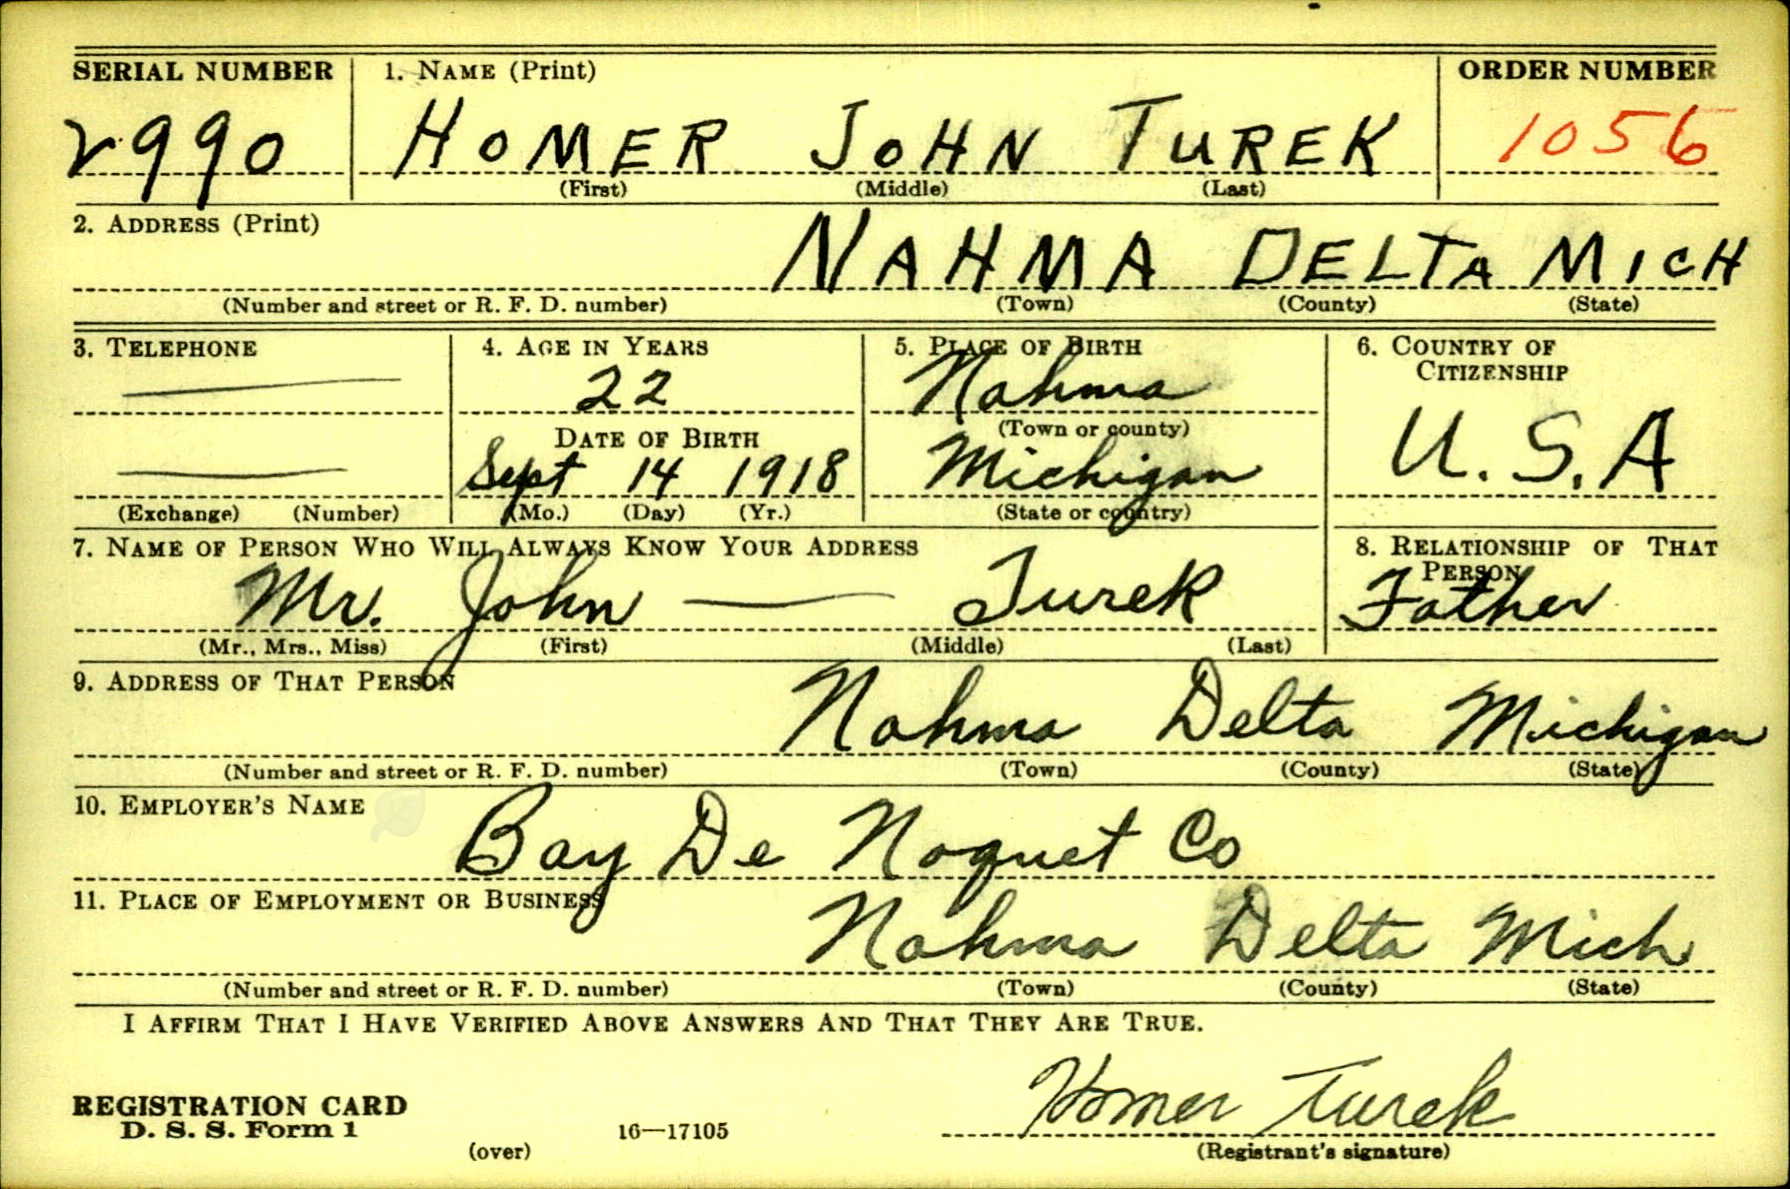 SERIAL NUMBER 1. NAME (Print) ORDER NUMBER
2990 HOMER JOHN TUREK 1056
(First) (Middle) (Last)
2. ADDRESS (Print)
NAHMA DELTA MICH
(Number and street or R. F. D. number) (Town) (County) (State)
3. TELEPHONE 4. AGE IN YEARS 5. PLACE OF BIRTH 6. COUNTRY OF CITIZENSHIP
22 Nahma
DATE OF BIRTH (Town or county) U.S.A
Sept 14 1918 Michigan
(Exchange) (Number) (Mo.) (Day) (Yr.) (State or country)
7. NAME OF PERSON WHO WILL ALWAYS KNOW YOUR ADDRESS 8. RELATIONSHIP OF THAT PERSON
Mr. John — Turek Father
(Mr., Mrs., Miss) (First) (Middle) (Last)
9. ADDRESS OF THAT PERSON
Nahma Delta Michigan
(Number and street or R. F. D. number) (Town) (County) (State)
10. EMPLOYER'S NAME
Bay De Noquet Co
11. PLACE OF EMPLOYMENT OR BUSINESS
Nahma Delta Mich
(Number and street or R. F. D. number) (Town) (County) (State)
I AFFIRM THAT I HAVE VERIFIED ABOVE ANSWERS AND THAT THEY ARE TRUE.
Homer Turek
REGISTRATION CARD
D. S. S. Form 1 16—17105
(over) (Registrant's signature)